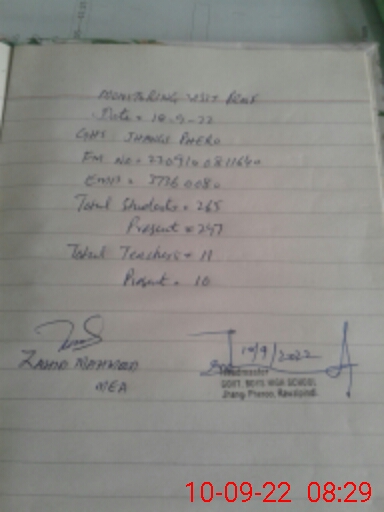 MONITORING VISIT PROOF
Date = 10-9-22
GHS JHANGI PHERO
Total Students = 265
Present = 247
Total Teachers = 11
Present = 10
ZAHID MAHMOOD
MEA
10/9/2022
Headmaster
GOVT. BOYS HIGH SCHOOL
Jhang Pheroo, Rawalpindi.
10-09-22 08:29